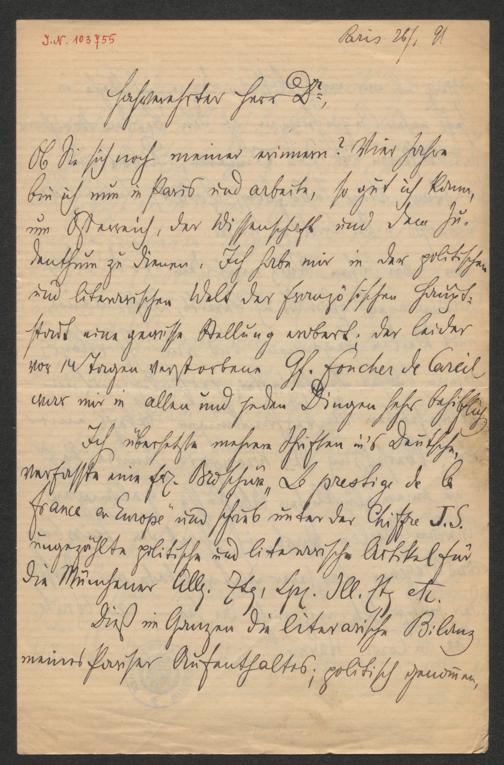 J.N. 103755
Paris 26/1 91
Hochverehrter Herr Dr.,
Ob Sie sich noch meiner erinnern? Vier Jahre
bin ich nun in Paris und arbeite, so gut ich kann,
um Österreich, der Wissenschaft und dem Ju-
denthum zu dienen. Ich habe mir in der politischen
und literarischen Welt der französischen Haupt-
stadt eine gewisse Stellung erobert. Der leider
vor 14 Tagen verstorbene Gf. Foucher de Careil
war mir in allen und jeden Dingen sehr behilflich
Ich übersetzte mehrere Schriften in's Deutsche,
verfasste eine frz. Broschüre „Le prestige de la
France en Europe" und schrieb unter der Chiffre J.S.
ungezählte politische und literarische Artikel für
die Münchener Allg. Ztg, Lpz. Ill. Ztg etc.
Dieß im Ganzen die literarische Bilanz
meines Pariser Aufenthaltes; politisch genom̄en,